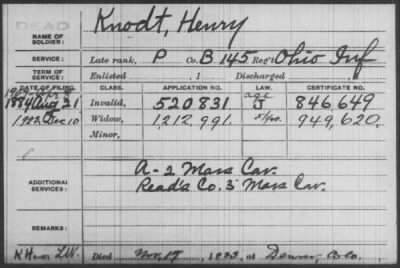 DEAD
Knodt, Henry
NAME OF SOLDIER:
SERVICE: Late rank, P Co. B 145 Reg't Ohio Inf
TERM OF SERVICE: Enlisted , 1 Discharged , 1
DATE OF FILING. CLASS. APPLICATION NO. LAW. CERTIFICATE NO.
1884 Aug 21 Invalid, 520831 age J 846,649
1923 Dec 10 Widow, 1212,991 949,620.
Minor,
ADDITIONAL SERVICES: A-2 Mass Cav.
Read's Co. 3 Mass Cav.
REMARKS:
Died Nov. 17, 1923, at Denver, Colo.